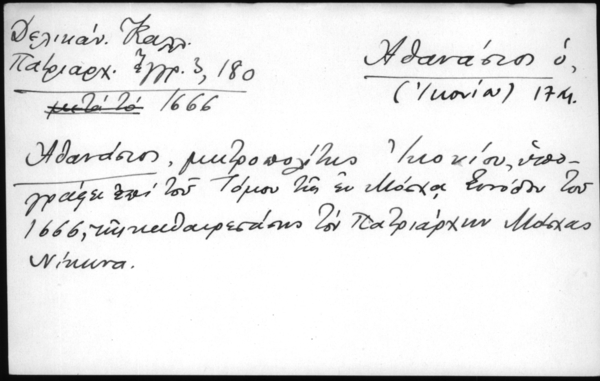 Δελικάν. Καλλ.
Πατριαρχ. Ἔγγρ. 3, 180
μετὰ τὸ 1666
Ἀθανάσιος ὁ,
(Ἰκονίου) 17 αι.
Ἀθανάσιος, μητροπολίτης Ἰκονίου, ὑπο-
γράφει ἐπὶ τοῦ Τόμου τῆς ἐν Μόσχᾳ Συνόδου τοῦ
1666, τῆς καθαιρεσάσης τὸν Πατριάρχην Μόσχας
Νίκωνα.